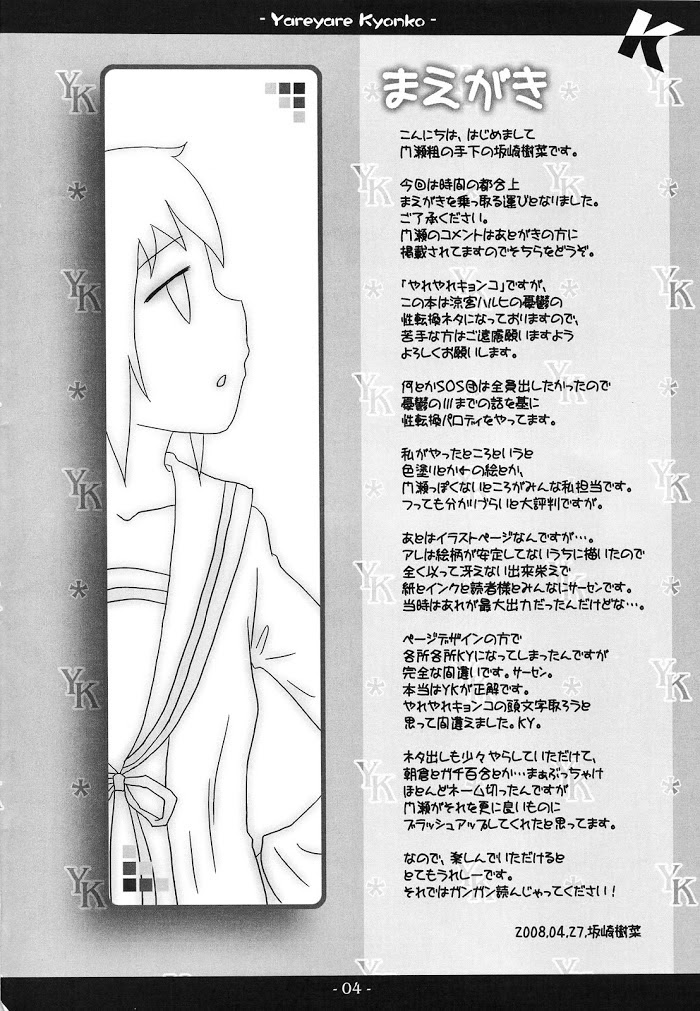 - Yareyare Kyonko -
K
まえがき
こんにちは、はじめまして
門瀬粗の手下の坂崎樹菜です。
今回は時間の都合上
まえがきを乗っ取る運びとなりました。
ご了承ください。
門瀬のコメントはあとがきの方に
掲載されてますのでそちらをどうぞ。
「やれやれキョンコ」ですが、
この本は涼宮ハルヒの憂鬱の
性転換ネタになっておりますので、
苦手な方はご遠慮願いますよう
よろしくお願いします。
何とかSOS団は全員出したかったので
憂鬱のⅢまでの話を基に
性転換パロディをやってます。
私がやったところというと
色塗りとかわの絵とか、
門瀬っぽくないところがみんな私担当です。
つっても分かりづらいと大評判ですが。
あとはイラストページなんですが…。
アレは絵柄が安定してないうちに描いたので
全く以って冴えない出来栄えで
紙とインクと読者様とみんなにサーセンです。
当時はあれが最大出力だったんだけどな…。
ページデザインの方で
各所各所KYになってしまったんですが
完全な間違いです。サーセン。
本当はYKが正解です。
やれやれキョンコの頭文字取ろうと
思って間違えました。KY。
ネタ出しも少々やらしていただけて、
朝倉とガチ百合とか…まぁぶっちゃけ
ほとんどネーム切ったんですが
門瀬がそれを更に良いものに
ブラッシュアップしてくれたと思ってます。
なので、楽しんでいただけると
とてもうれしーです。
それではガンガン読んじゃってください！
2008.04.27.坂崎樹菜
YK
YK
YK
YK
YK
YK
YK
YK
YK
YK
YK
- 04 -